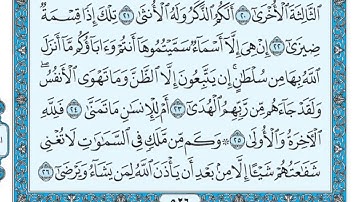 الثَّالِثَةَ الْأُخْرَىٰ ٢٠ أَلَكُمُ الذَّكَرُ وَلَهُ الْأُنثَىٰ ٢١ تِلْكَ إِذًا قِسْمَةٌ
ضِيزَىٰ ٢٢ إِنْ هِيَ إِلَّا أَسْمَاءٌ سَمَّيْتُمُوهَا أَنتُمْ وَآبَاؤُكُم مَّا أَنزَلَ
اللَّهُ بِهَا مِن سُلْطَانٍ ۚ إِن يَتَّبِعُونَ إِلَّا الظَّنَّ وَمَا تَهْوَى الْأَنفُسُ ۖ
وَلَقَدْ جَاءَهُم مِّن رَّبِّهِمُ الْهُدَىٰ ٢٣ أَمْ لِلْإِنسَانِ مَا تَمَنَّىٰ ٢٤ فَلِلَّهِ
الْآخِرَةُ وَالْأُولَىٰ ٢٥ ۞ وَكَم مِّن مَّلَكٍ فِي السَّمَاوَاتِ لَا تُغْنِي
شَفَاعَتُهُمْ شَيْئًا إِلَّا مِن بَعْدِ أَن يَأْذَنَ اللَّهُ لِمَن يَشَاءُ وَيَرْضَىٰ ٢٦
٥٢٦